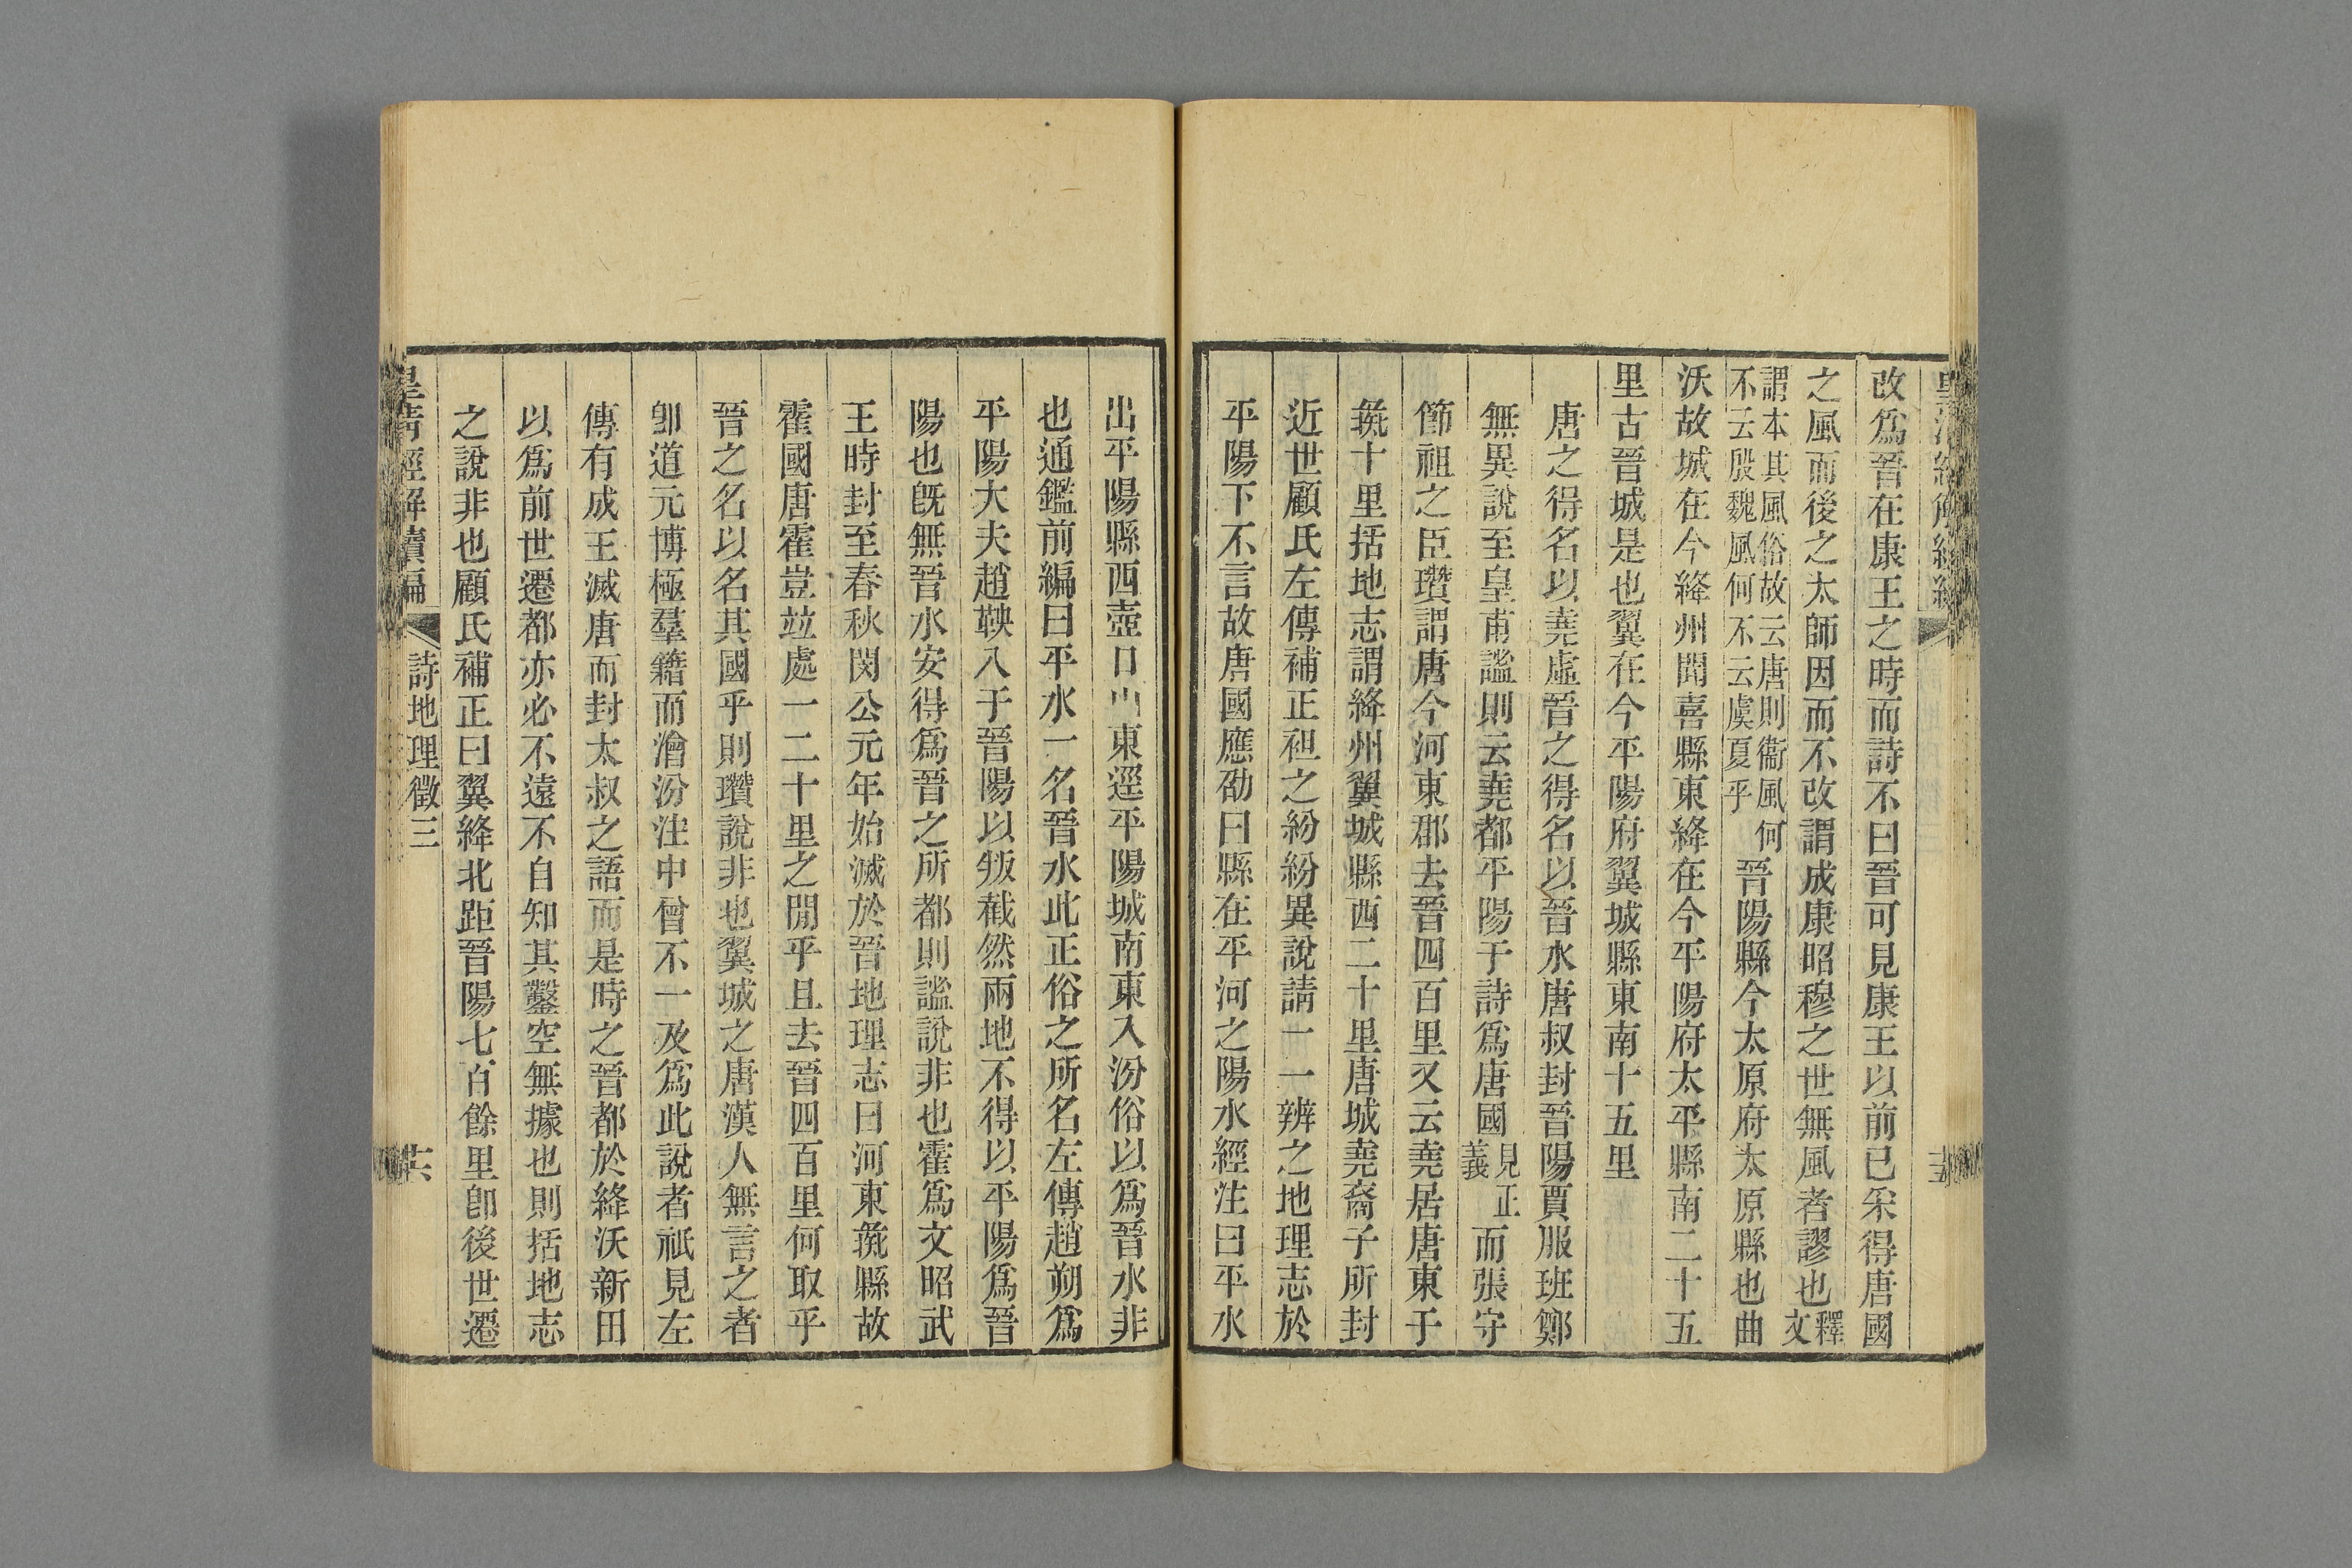 改爲晉在康王之時而詩不曰晉可見康王以前已采得唐國
之風而後之太師因而不改謂成康昭穆之世無風者謬也釋文
謂本其風俗故云唐則衞風何
不云殷魏風何不云虞夏乎
晉陽縣今太原府太原縣也曲
沃故城在今絳州聞喜縣東絳在今平陽府太平縣南二十五
里古晉城是也翼在今平陽府翼城縣東南十五里
唐之得名以堯虛晉之得名以晉水唐叔封晉陽賈服班鄭
無異說至皇甫謐則云堯都平陽于詩爲唐國見正義而張守
節祖之臣瓚謂唐今河東郡去晉四百里又云堯居唐東于
彘十里括地志謂絳州翼城縣西二十里唐城堯裔子所封
近世顧氏左傳補正袒之紛紛異說請一一辨之地理志於
平陽下不言故唐國應劭曰縣在平河之陽水經注曰平水
出平陽縣西壺口山東逕平陽城南東入汾俗以爲晉水非
也通鑑前編曰平水一名晉水此正俗之所名左傳趙朔爲
平陽大夫趙鞅入于晉陽以叛截然兩地不得以平陽爲晉
陽也旣無晉水安得爲晉之所都則謐說非也霍爲文昭武
王時封至春秋閔公元年始滅於晉地理志曰河東彘縣故
霍國唐霍豈竝處一二十里之閒乎且去晉四百里何取乎
晉之名以名其國乎則瓚說非也翼城之唐漢人無言之者
卽道元博極羣籍而澮汾注中曾不一及爲此說者祇見左
傳有成王滅唐而封太叔之語而是時之晉都於絳沃新田
以爲前世遷都亦必不遠不自知其鑿空無據也則括地志
之說非也顧氏補正曰翼絳北距晉陽七百餘里卽後世遷
皇清經解續編
詩地理徵三